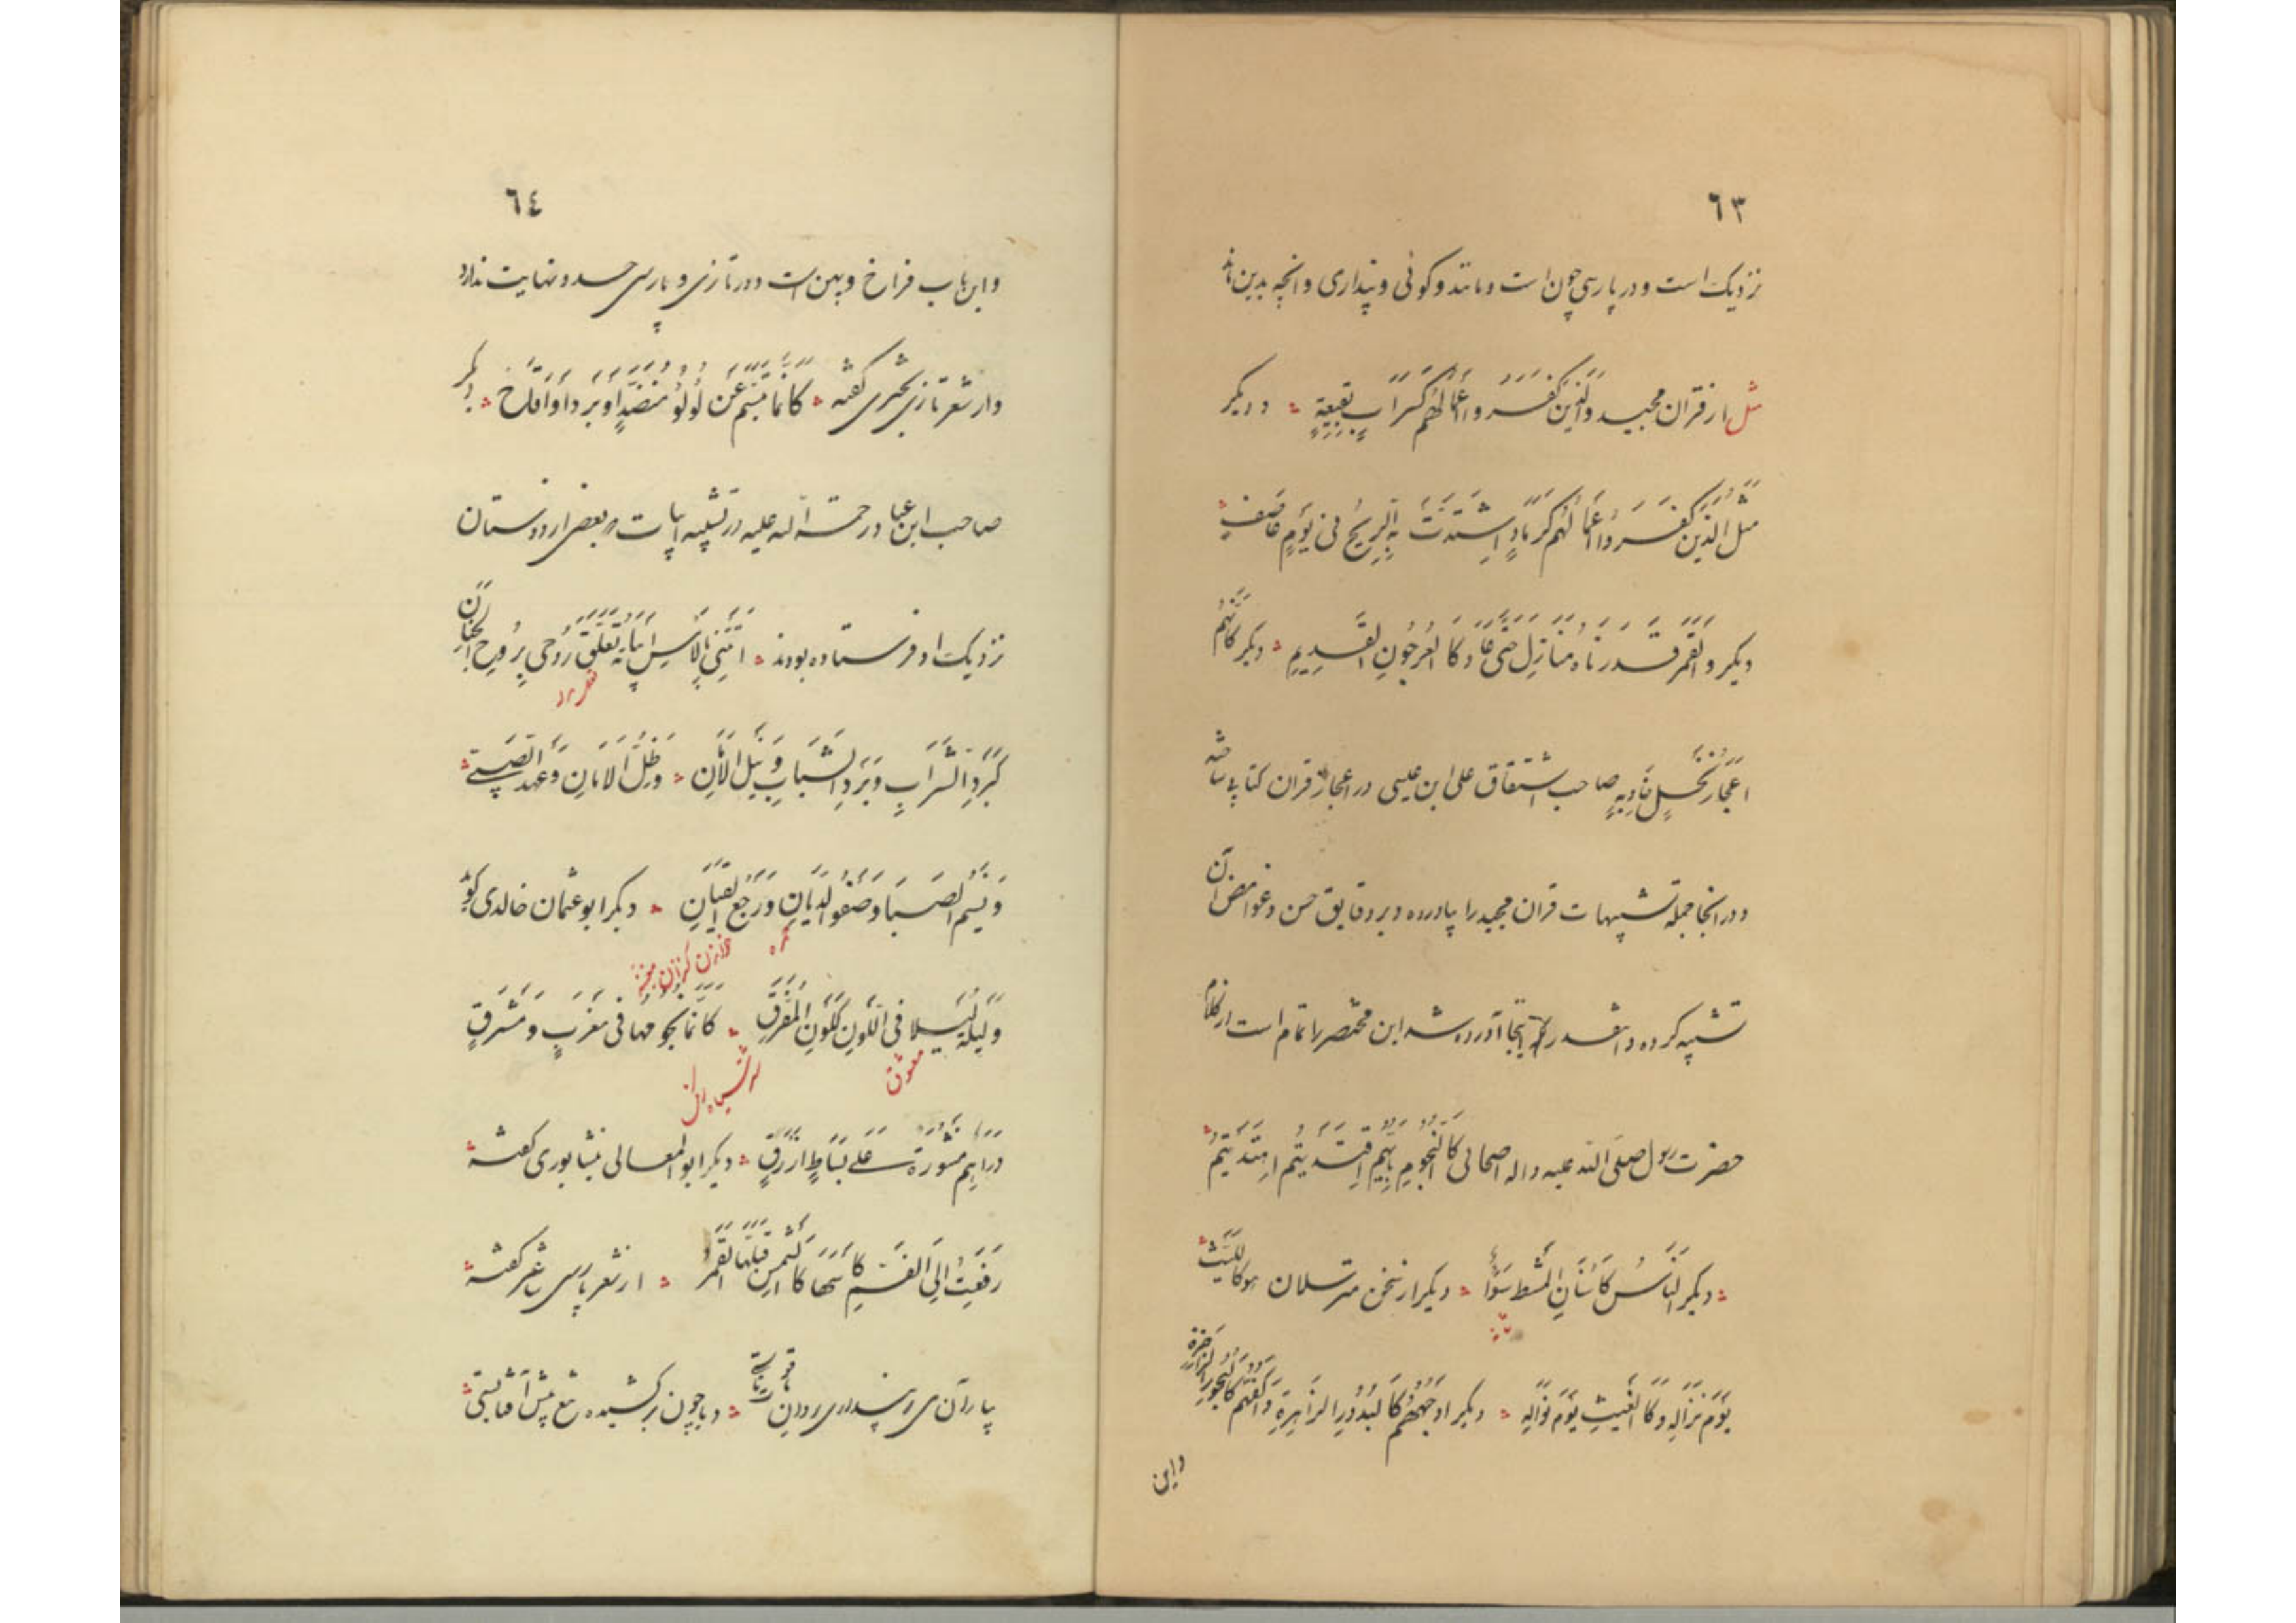 ٦٣
نزدیک است و در پارسی چون است و مانند و کوئی و پنداری و انچه بدین ماند
مثل از قران مجید وَالَّذینَ کَفَرُوا اَعْمالُهُم کَسَرابٍ بِقیعَةٍ و دیکر
مَثَلُ الَّذینَ کَفَرُوا اَعْمالُهُم کَرَمادٍ اِشْتَدَّتْ بِهِ الرّیحُ فی یَومٍ عاصِفٍ
دیکر وَالْقَمَرَ قَدَّرناهُ مَنازِلَ حَتّی عادَ کَالعُرجُونِ القَدیمِ دیکر کَاَنَّهُم
اَعْجازُ نَخْلٍ خاوِیَةٍ صاحب اشتقاق علی ابن عیسی در اعجاز قران کتابی ساخته
و در انجا جمله تشبیهات قران مجید را بیاورده و بر دقایق حسن و غوامض آن
تشبیه کرده و انقدر که اینجا آورده شد این مختصر را تمام است از کلام
حضرت رسول صلی الله علیه و اله اصحابی کَالنُّجُومِ بِاَیِّهِم اِقْتَدَیتُم اِهْتَدَیتُم
دیکر اَلنّاسُ کَاَسْنانِ المُشطِ سَواءٌ دیکر از سخن مترسلان هو کاللَّیثِ
یَومَ نِزالِهِ وَ کَالغَیثِ یَومَ نَوالِهِ دیکر اَوجُهُهُم کَالبُدُورِ الزّاهِرَةِ وَ اَکُفُّهُم کَالبُحُورِ الزّاخِرَةِ
واین
٦٤
و این باب فراخ و پهن است و در تازی و پارسی حد و نهایت ندارد
و از شعر تازی بحتری گفته کَاَنَّما تَبَسَّمَ عَن لُؤلُؤٍ مُنَضَّدٍ اَو بَرَدٍ اَو اَقاحٍ دیکر
صاحب ابن عباد رحمة الله علیه در تشبیه ابیات که بعضی از دوستان
نزدیک او فرستاده بودند اَتَتنی بِالاَمسِ اَبیاتُهُ تَعَلَّقَ رُوحی بِرُوحِ الجِنانِ
کَبَردِ الشَّرابِ وَ بَردِ الشَّبابِ وَ نَیلِ الاَمانی وَ ظِلِّ الاَمانِ وَ عَهدِ الصِّبی
وَ نَسیمِ الصَّبا وَ صَفوِ الدِّنانِ وَ رَجعِ القِیانِ دیکر ابو عثمان خالدی کوید
وَ لَیلَةٍ لَیلاءَ فی اللَّونِ کَلَونِ المَفرِقِ کَاَنَّما نُجُومُها فی مَغرِبٍ وَ مَشرِقٍ
دَراهِمُ مَنثُورَةٌ عَلی بِساطٍ اَزرَقٍ دیکر ابو المعالی نیشابوری کفته
رَفَعَت اِلَی الفَمِ کَأسَها کَالشَّمسِ قَبَّلَهَا القَمَرُ از شعر پارسی شاعر کفته
یا رب آن می و پنداری روان یاقوت نابستی و یا چون برکشیده تیغ پیش آفتابستی